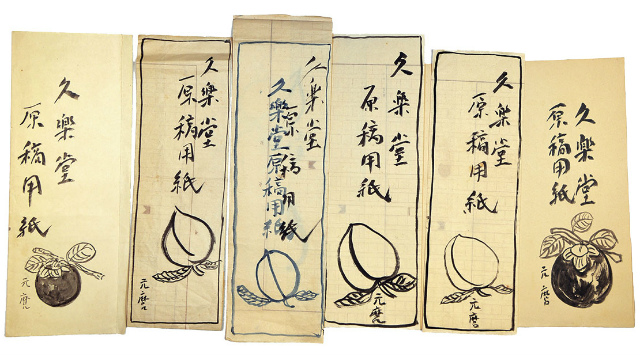 久樂堂
原稿用紙
元麿
久樂堂
原稿用紙
元麿
久樂堂
久樂堂原稿用紙
久樂堂
原稿用紙
元麿
久樂堂
原稿用紙
元麿
久樂堂
原稿用紙
元麿